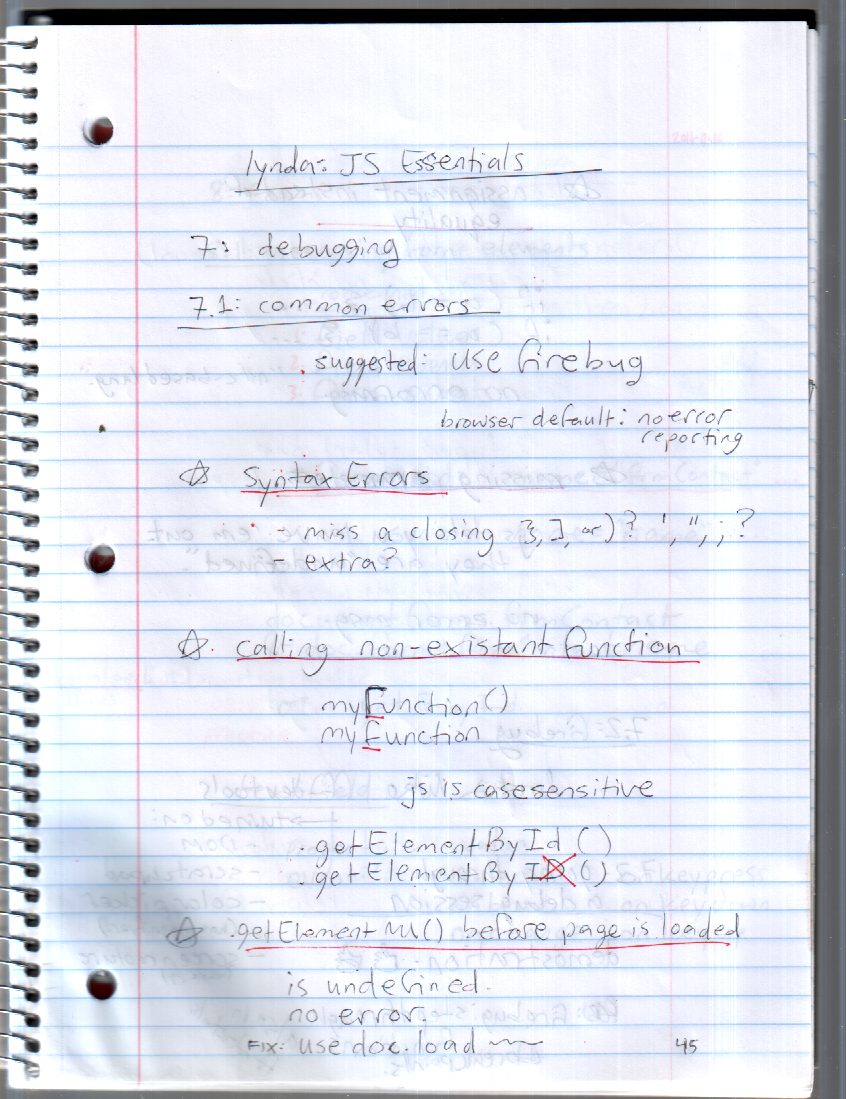 lynda: JS Essentials
7: debugging
7.1: common errors
. suggested: use firebug
browser default: no error
reporting
☆ Syntax Errors
- miss a closing }, ], or ) ? ', ", ; ?
- extra?
☆. calling non-existant function
myFunction()
myfunction
js is casesensitive
. getElementById ()
. getElementByID ()
☆ .getElement () before page is loaded
is undefined.
no error.
FIX: use doc.load ~~
45